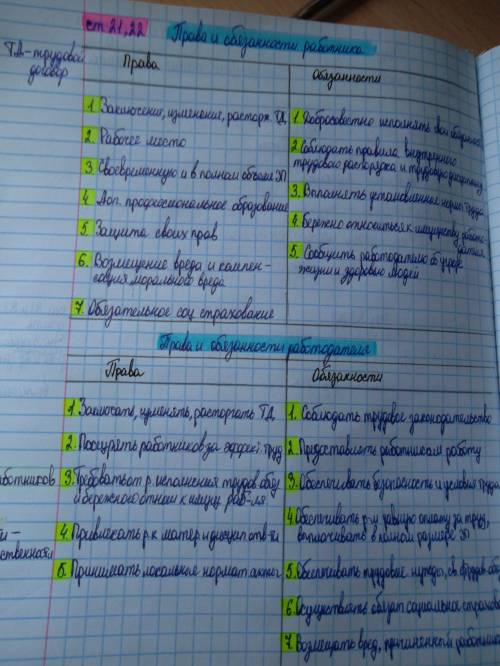 ст 21,22
Права и обязанности работника
ТД-трудовой
договор
Права
1. Заключение, изменение, расторж. ТД
2. Рабочее место
3. Своевременную и в полном объеме ЗП
4. Доп. профессиональное образование
5. Защита своих прав
6. Возмещение вреда и компен-
сация морального вреда
7. Обязательное соц страхование
Обязанности
1. Добросовестно исполнять свои
2. Соблюдать правила внутреннего
трудового распорядка и трудовую дисциплину
3. Выполнять установленные нормы труда
4. Бережно относиться к имуществу работо-
дателя
5. Сообщить работодателю об угрозе
жизни и здоровью людей
Права и обязанности работодателя
Права
1. Заключать, изменять, расторгать ТД
2. Поощрять работников за эффект. труд
3. Требовать от р. исполнения трудов. обяз
и бережного отнош к имущ. раб-ля
4. Привлекать р. к матер и дисцип отв-ти
5. Принимать локальные норматив акты
работников
ственности
Обязанности
1. Соблюдать трудовое законодательство
2. Предоставлять работникам работу
3. Обеспечивать безопасность и условия труда
4. Обеспечивать р-м равную оплату за труд,
выплачивать в полном размере ЗП
5. Обеспечивать трудовые нужды,
6. Осуществлять обязат социальное страхова
7. Возмещать вред, причиненный работника